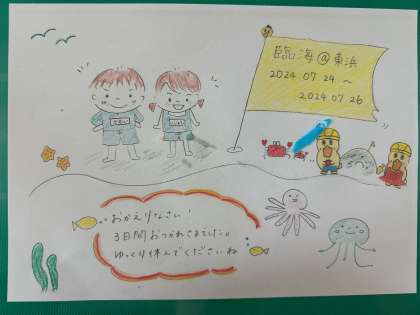 臨海@東浜
2024.07.24～
2024.07.26
おかえりなさい！
3日間おつかれさまでした。
ゆっくり休んでくださいね